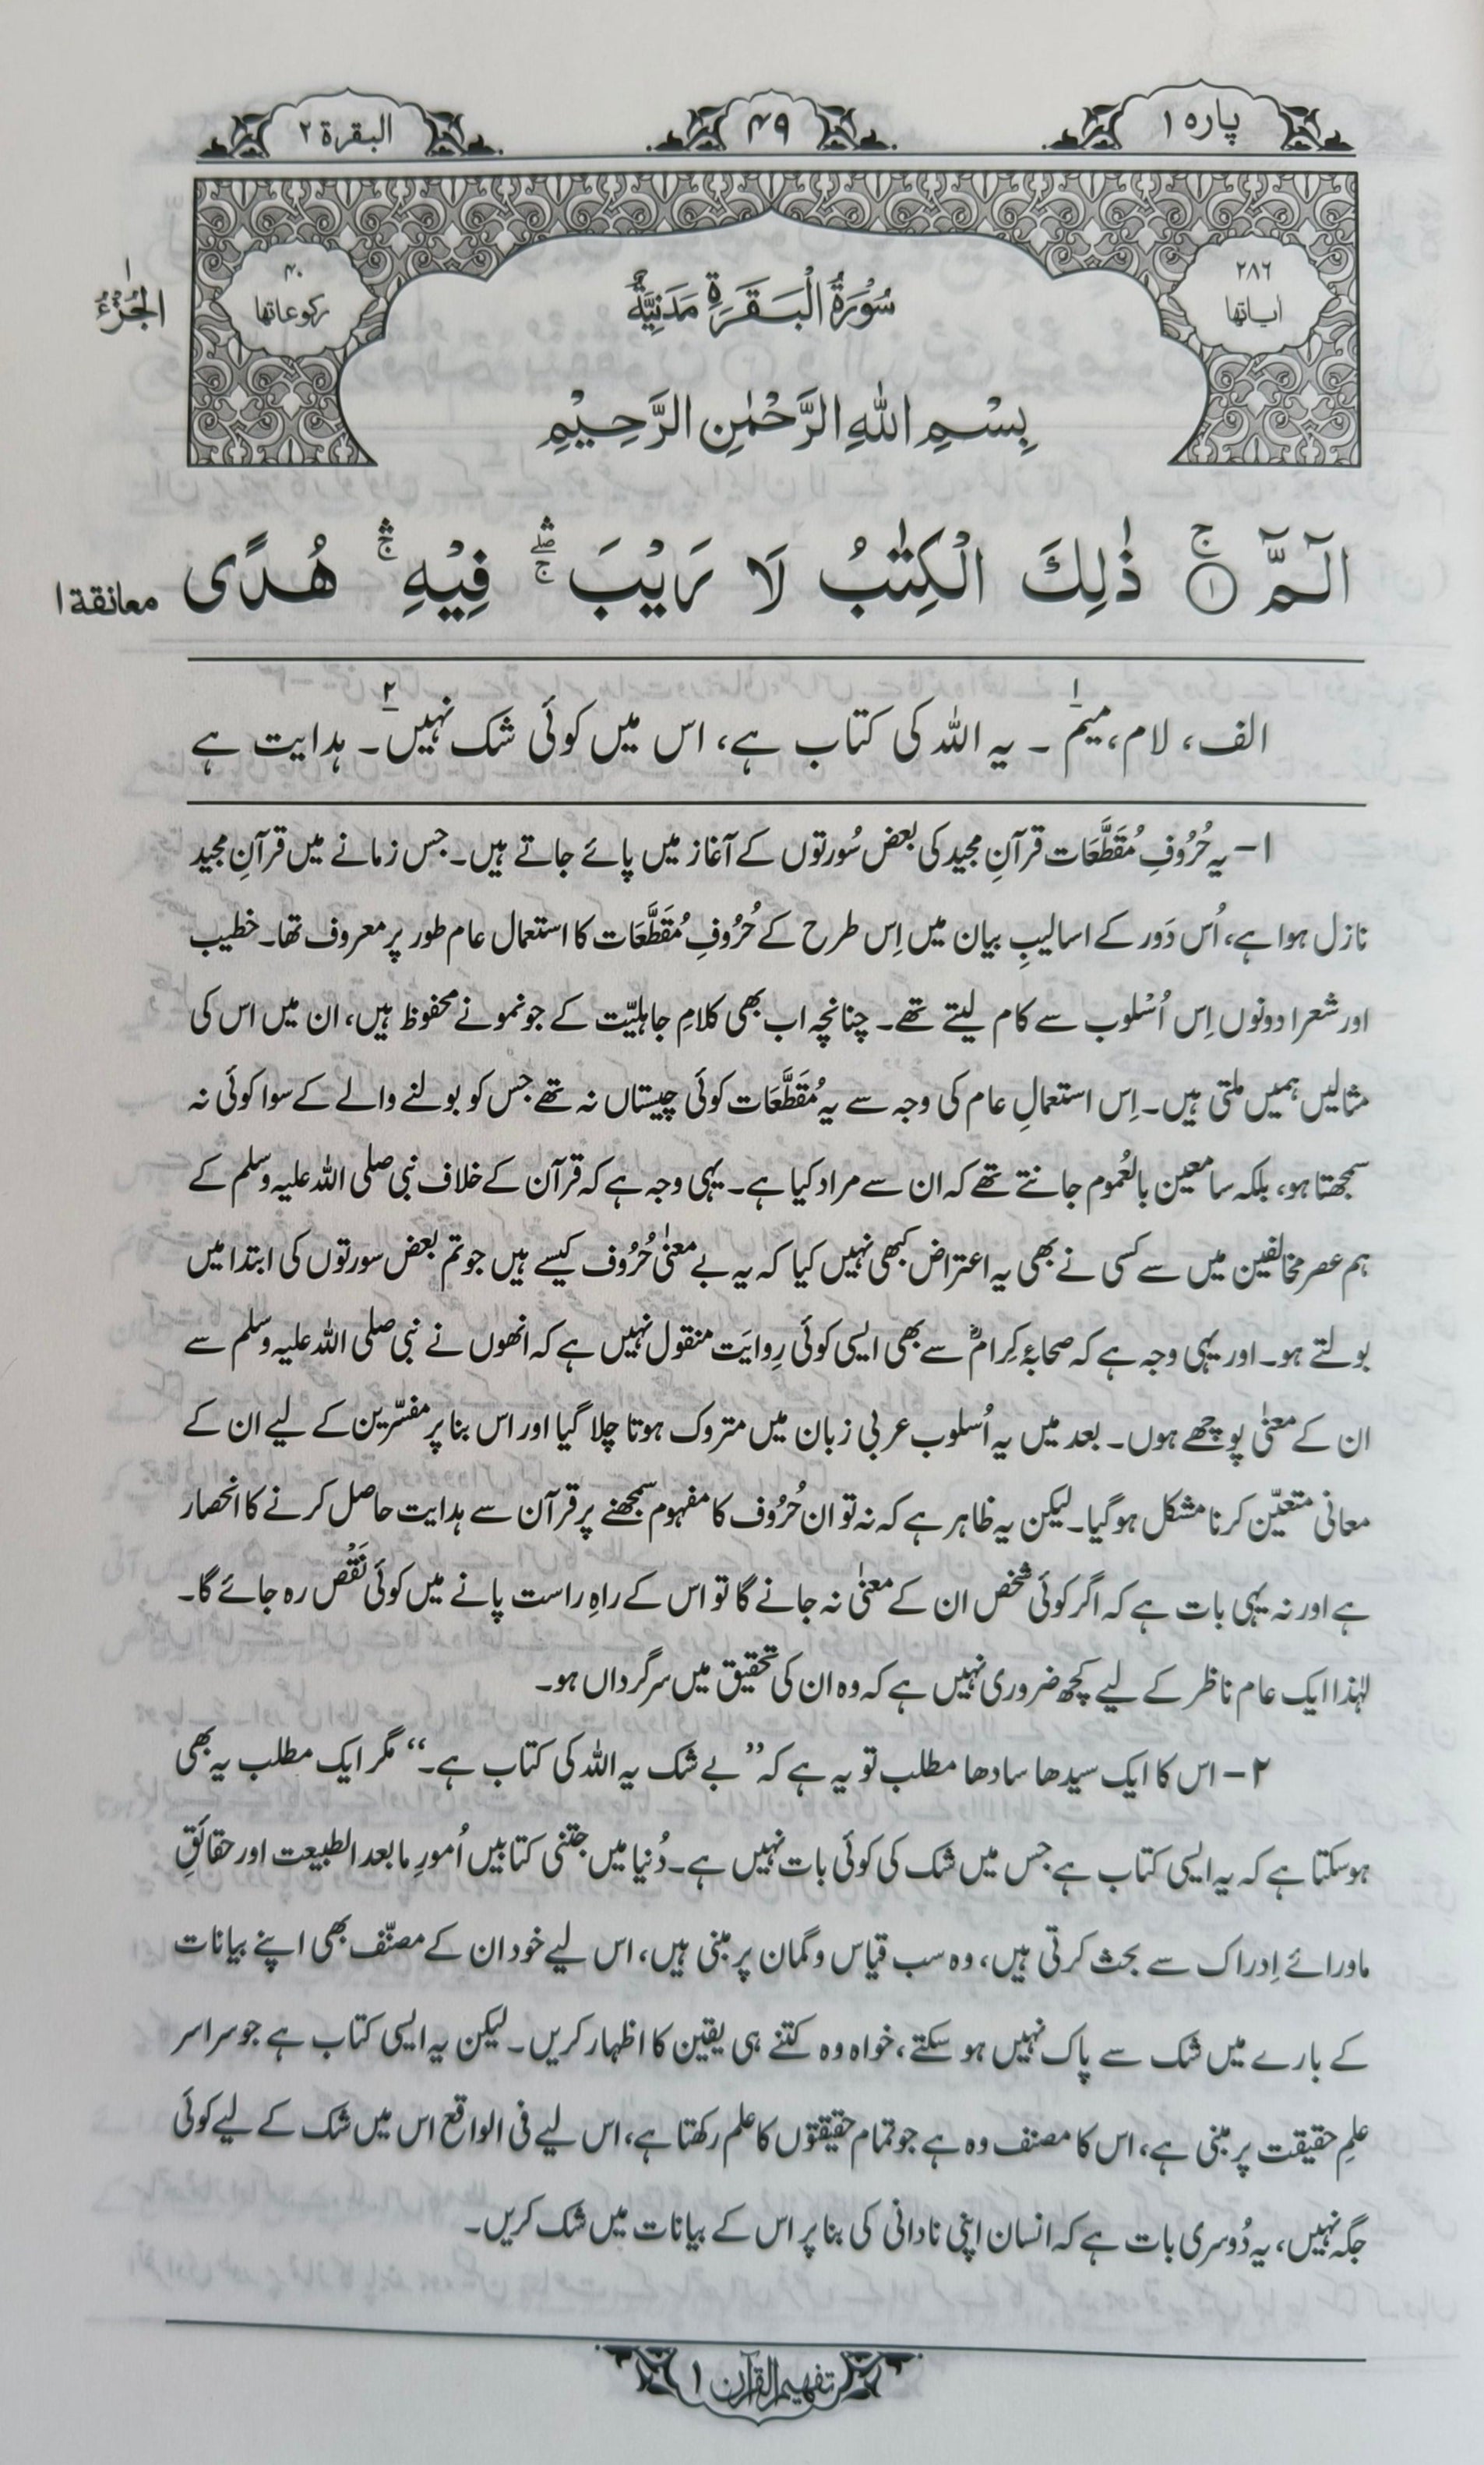 پارہ ۱
۴۹
البقرۃ ۲
۲۸۶
اٰیاتها
سُوْرَةُ الْبَقَرَةِ مَدَنِيَّةٌ
۴۰
رکوعاتها
الجُزْءُ ۱
بِسْمِ اللّٰهِ الرَّحْمٰنِ الرَّحِيْمِ
الٓمّٓ ۚ﴿۱﴾ ذٰلِكَ الْكِتٰبُ لَا رَيْبَ ۛۖۚ فِيْهِ ۛۚ هُدًى
معانقة ۱
الف، لام، میم۱۔ یہ اللہ کی کتاب ہے، اس میں کوئی شک نہیں۲۔ ہدایت ہے
۱- یہ حُرُوفِ مُقَطَّعَات قرآنِ مجید کی بعض سُورتوں کے آغاز میں پائے جاتے ہیں۔ جس زمانے میں قرآنِ مجید
نازل ہوا ہے، اُس دَور کے اسالیبِ بیان میں اِس طرح کے حُرُوفِ مُقَطَّعَات کا استعمال عام طور پر معروف تھا۔ خطیب
اور شعرا دونوں اِس اُسْلوب سے کام لیتے تھے۔ چنانچہ اب بھی کلامِ جاہلیّت کے جو نمونے محفوظ ہیں، ان میں اس کی
مثالیں ہمیں ملتی ہیں۔ اِس استعمالِ عام کی وجہ سے یہ مُقَطَّعَات کوئی چیستاں نہ تھے جس کو بولنے والے کے سوا کوئی نہ
سمجھتا ہو، بلکہ سامعین بالعُموم جانتے تھے کہ ان سے مراد کیا ہے۔ یہی وجہ ہے کہ قرآن کے خلاف نبی صلی اللہ علیہ وسلم کے
ہم عصر مخالفین میں سے کسی نے بھی یہ اعتراض کبھی نہیں کیا کہ یہ بے معنیٰ حُرُوف کیسے ہیں جو تم بعض سورتوں کی ابتدا میں
بولتے ہو۔ اور یہی وجہ ہے کہ صحابۂ کِرامؓ سے بھی ایسی کوئی رِوایَت منقول نہیں ہے کہ انھوں نے نبی صلی اللہ علیہ وسلم سے
ان کے معنیٰ پوچھے ہوں۔ بعد میں یہ اُسلوب عربی زبان میں متروک ہوتا چلا گیا اور اس بنا پر مفسّرین کے لیے ان کے
معانی متعیّن کرنا مشکل ہوگیا۔ لیکن یہ ظاہر ہے کہ نہ تو ان حُرُوف کا مفہوم سمجھنے پر قرآن سے ہدایت حاصل کرنے کا انحصار
ہے اور نہ یہی بات ہے کہ اگر کوئی شخص ان کے معنیٰ نہ جانے گا تو اس کے راہِ راست پانے میں کوئی نَقْص رہ جائے گا۔
لہٰذا ایک عام ناظر کے لیے کچھ ضروری نہیں ہے کہ وہ ان کی تحقیق میں سرگرداں ہو۔
۲- اس کا ایک سیدھا سادھا مطلب تو یہ ہے کہ ”بے شک یہ اللہ کی کتاب ہے۔“ مگر ایک مطلب یہ بھی
ہوسکتا ہے کہ یہ ایسی کتاب ہے جس میں شک کی کوئی بات نہیں ہے۔ دُنیا میں جتنی کتابیں اُمورِ مابعد الطبیعت اور حقائقِ
ماورائے اِدراک سے بحث کرتی ہیں، وہ سب قیاس و گمان پر مبنی ہیں، اس لیے خود ان کے مصنّف بھی اپنے بیانات
کے بارے میں شک سے پاک نہیں ہو سکتے، خواہ وہ کتنے ہی یقین کا اظہار کریں۔ لیکن یہ ایسی کتاب ہے جو سراسر
علمِ حقیقت پر مبنی ہے، اس کا مصنف وہ ہے جو تمام حقیقتوں کا علم رکھتا ہے، اس لیے فی الواقع اس میں شک کے لیے کوئی
جگہ نہیں، یہ دُوسری بات ہے کہ انسان اپنی نادانی کی بنا پر اس کے بیانات میں شک کریں۔
تفہیم القرآن ۱